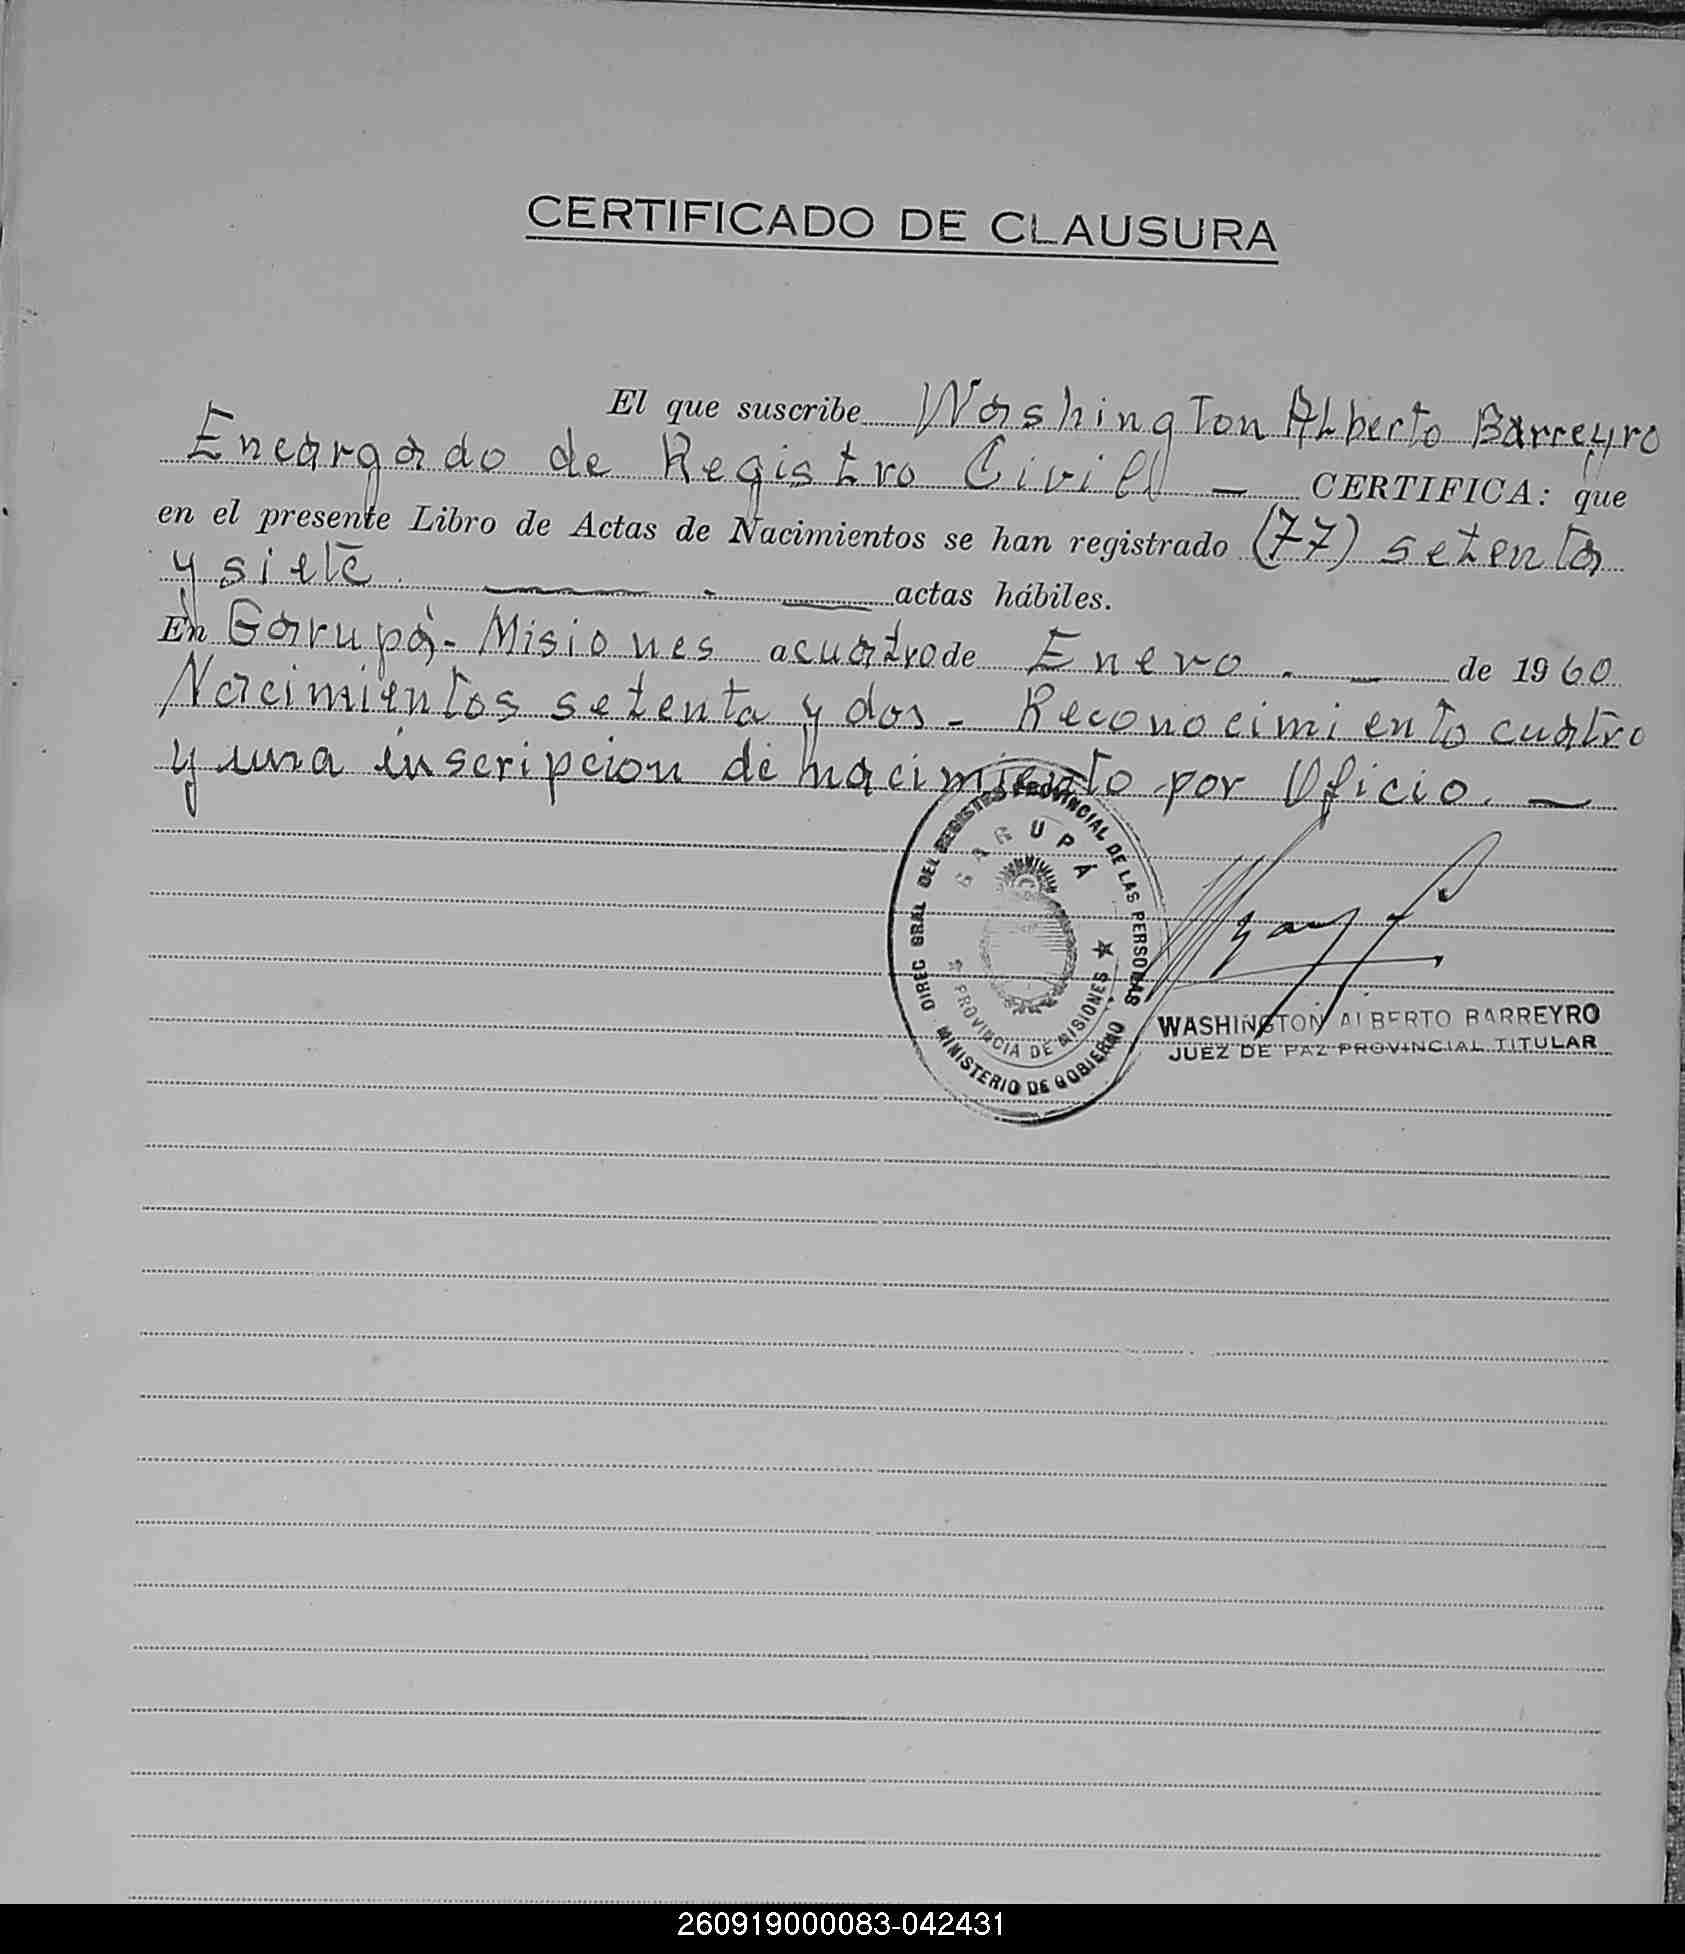 CERTIFICADO DE CLAUSURA
El que suscribe Washington Alberto Barreyro
Encargado de Registro Civil — CERTIFICA: que
en el presente Libro de Actas de Nacimientos se han registrado (77) setenta
y siete — . — actas hábiles.
En Garupá - Misiones a cuatro de Enero . — de 1960
Nacimientos setenta y dos - Reconocimiento cuatro
y una inscripcion de nacimiento por Oficio. —
DIREC GRAL DEL REGISTRO PROVINCIAL DE LAS PERSONAS
GARUPÁ
PROVINCIA DE MISIONES
MINISTERIO DE GOBIERNO
WASHINGTON ALBERTO BARREYRO
JUEZ DE PAZ PROVINCIAL TITULAR
260919000083-042431